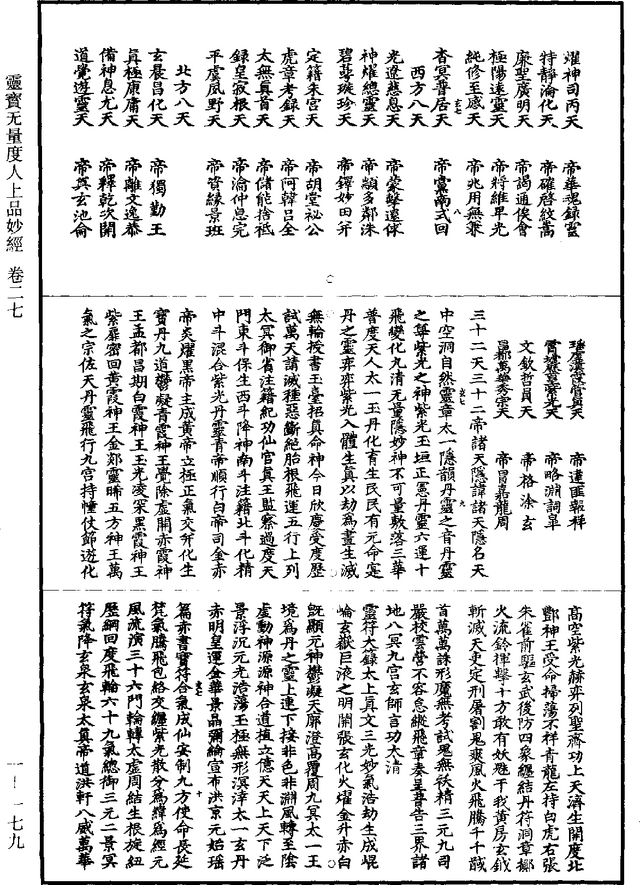 靈寶无量度人上品妙經 卷二七
一-一七九
耀神司丙天 帝華魂錄靈
特靜淪化天 帝確啓紋嵩
廉聖廣明天 帝謁通俟會
極陽遠靈天 帝將維早光
純修王咸天 帝兆用無兼
杳冥普居天 帝靈南式回
西方八天
光遼慈息天 帝蒙擊遠休
神耀總靈天 帝頫多鄰洙
碧蕚璇珍天 帝鐸妙田芥
定籍朱宮天 帝胡堂祕公
虎章考錄天 帝阿韓呂全
太無真首天 帝儲能捨袛
錄皇寂根天 帝淪仲息完
平虞風野天 帝資緣景班
北方八天
玄晨昌化天 帝獨勤王
真極康庸天 帝離文逸恭
備神息尤天 帝釋乾次開
道覺遊靈天 帝與玄池侖
帝達匯報祥
帝略淵詞皐
文欽哲員天 帝格涂玄
帝冒嘉龍周
三十二天三十二帝諸天隱諱諸天隱名天
中空洞自然靈章太一隱韻丹靈之音丹靈
之尊紫光之神紫光玉垣正憲丹靈六運十
飛變化九清无量隱妙神不可量敷落三華
普度天人太一玉丹化育生民民有元命寔
丹之靈弈弈紫光入體生真以劫為晝生滅
無輪授書玉臺招真命神今日欣慶受度歷
試萬天請滅種惡斷絕胎根飛運五行上列
太冥御省注籍紀功仙官真王監察過度天
門東斗保生西斗降神南斗注籍北斗化精
中斗混合紫光丹靈青帝順行白帝司金赤
帝炎耀黑帝主成黃帝立極正氣交并化生
寶丹九道鬱凝青霞神王覺除虛開赤霞神
王孟都昌期白霞神王玉光淩寀黑霞神王
紫扉密回黃霞神王金郊靈晞五方神王萬
氣之宗佐天丹靈飛行九宮持幢仗節遊化
高空紫光赫弈列聖齊功上天濟生開度北
酆神王受命掃蕩不祥青龍左持白虎右張
朱雀前驅玄武後防四象纏結丹符洞章擲
火流鈴揮擊十方敢有妖魅干我黃房玄鉞
斬滅天吏定刑屠割鬼爽風火飛騰千千戩
首萬萬誅形魔無考試鬼無袄精三元九司
嚴校雲營不容怠縱飛章奏呈普告三界諸
地八冥九宮玄師言功太清
靈符大錄太上真文三光妙氣浩劫生成崐
崘玄嶽巨液之明開張玄化火耀金升赤白
既顯元神鬱凝天廓澄高覆周九冥太一王
境為丹之靈上連下接非色非淵風轉至陰
虛動神源源神合道植立億天天上天下泛
景浮沉元光浩蕩王極無形溟滓太一玄丹
赤明皇運金華景晶彌綸宣布洪京元始瑶
篇赤書寶符合氣成仙妄制九方使命長延
梵氣騰飛包絡交纏紫光散分為緯為經元
風流演三十六門輪轉太虛周結生根旋紐
歷綱回度飛輪六十九氣總御三元二景冥
符氣降玄泉玄泉太真帝道洪軒八威萬華